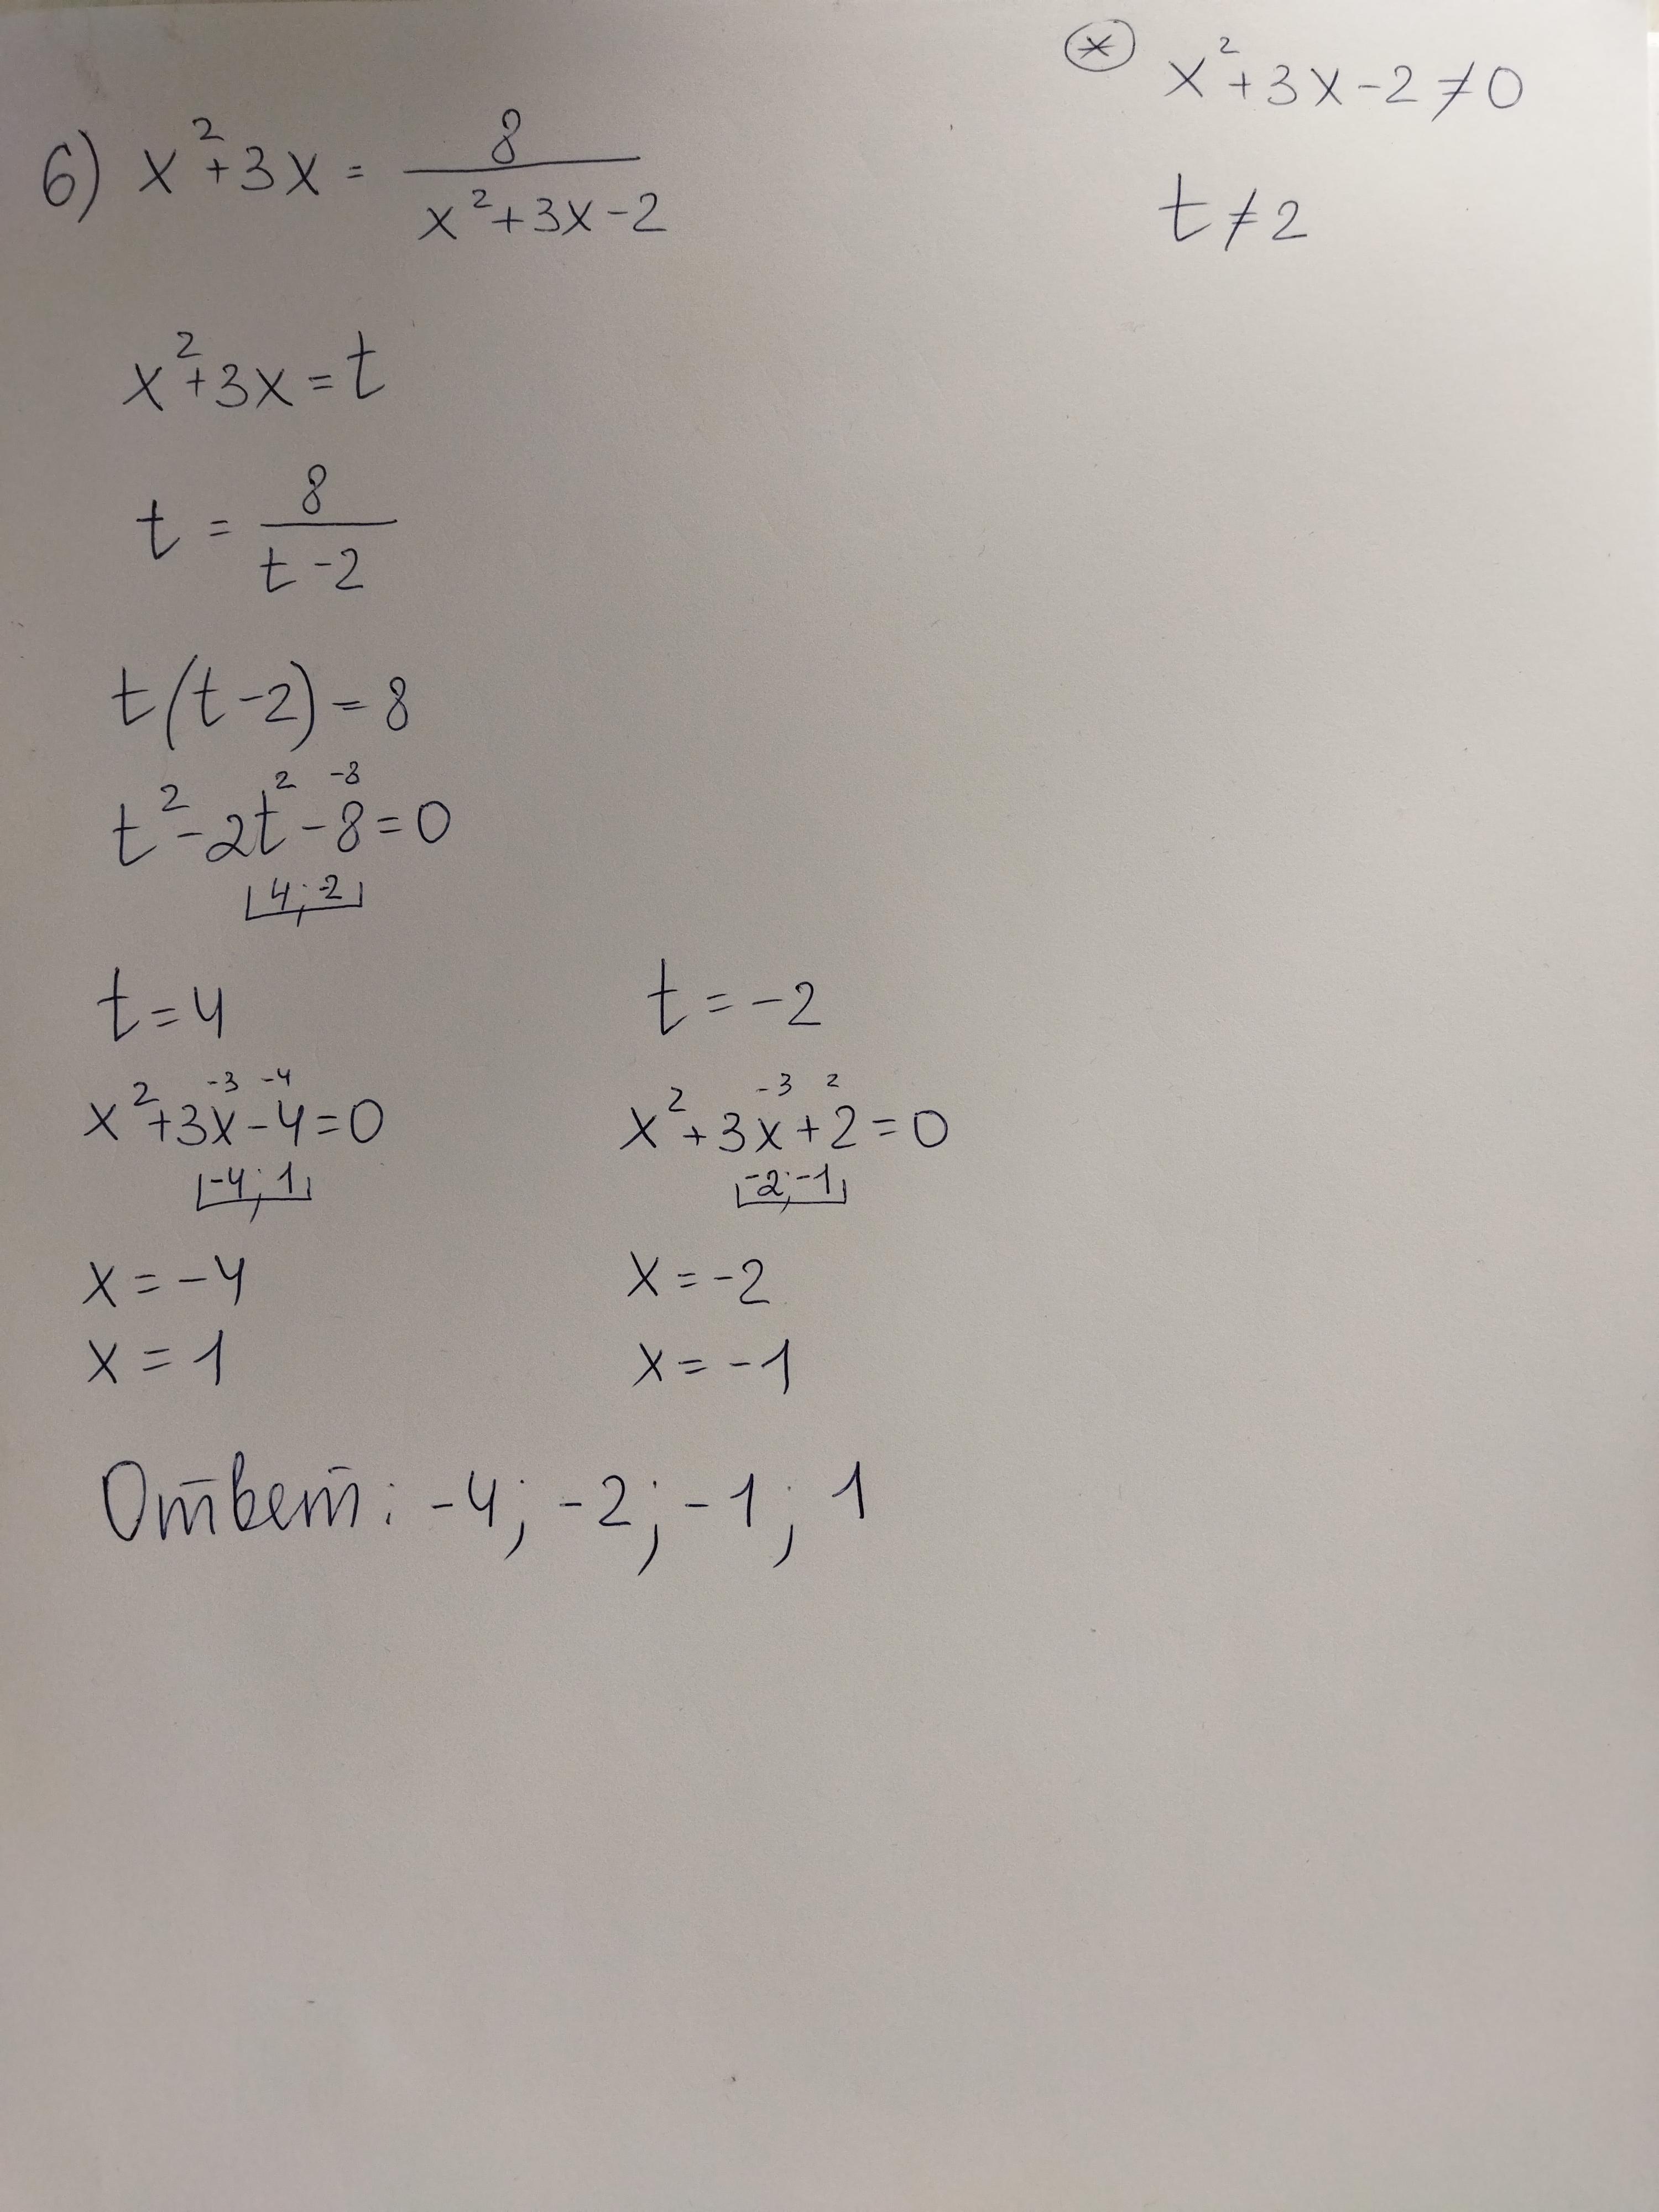 6) x²+3x = 8/(x²+3x-2)
⊛ x²+3x-2≠0
t≠2
x²+3x=t
t = 8/(t-2)
t(t-2)=8
2 -8
t²-2t-8=0
4; -2
t=4
-3 -4
x²+3x-4=0
-4; 1
x=-4
x=1
t=-2
-3 2
x²+3x+2=0
-2; -1
x=-2
x=-1
Ответ: -4; -2; -1; 1